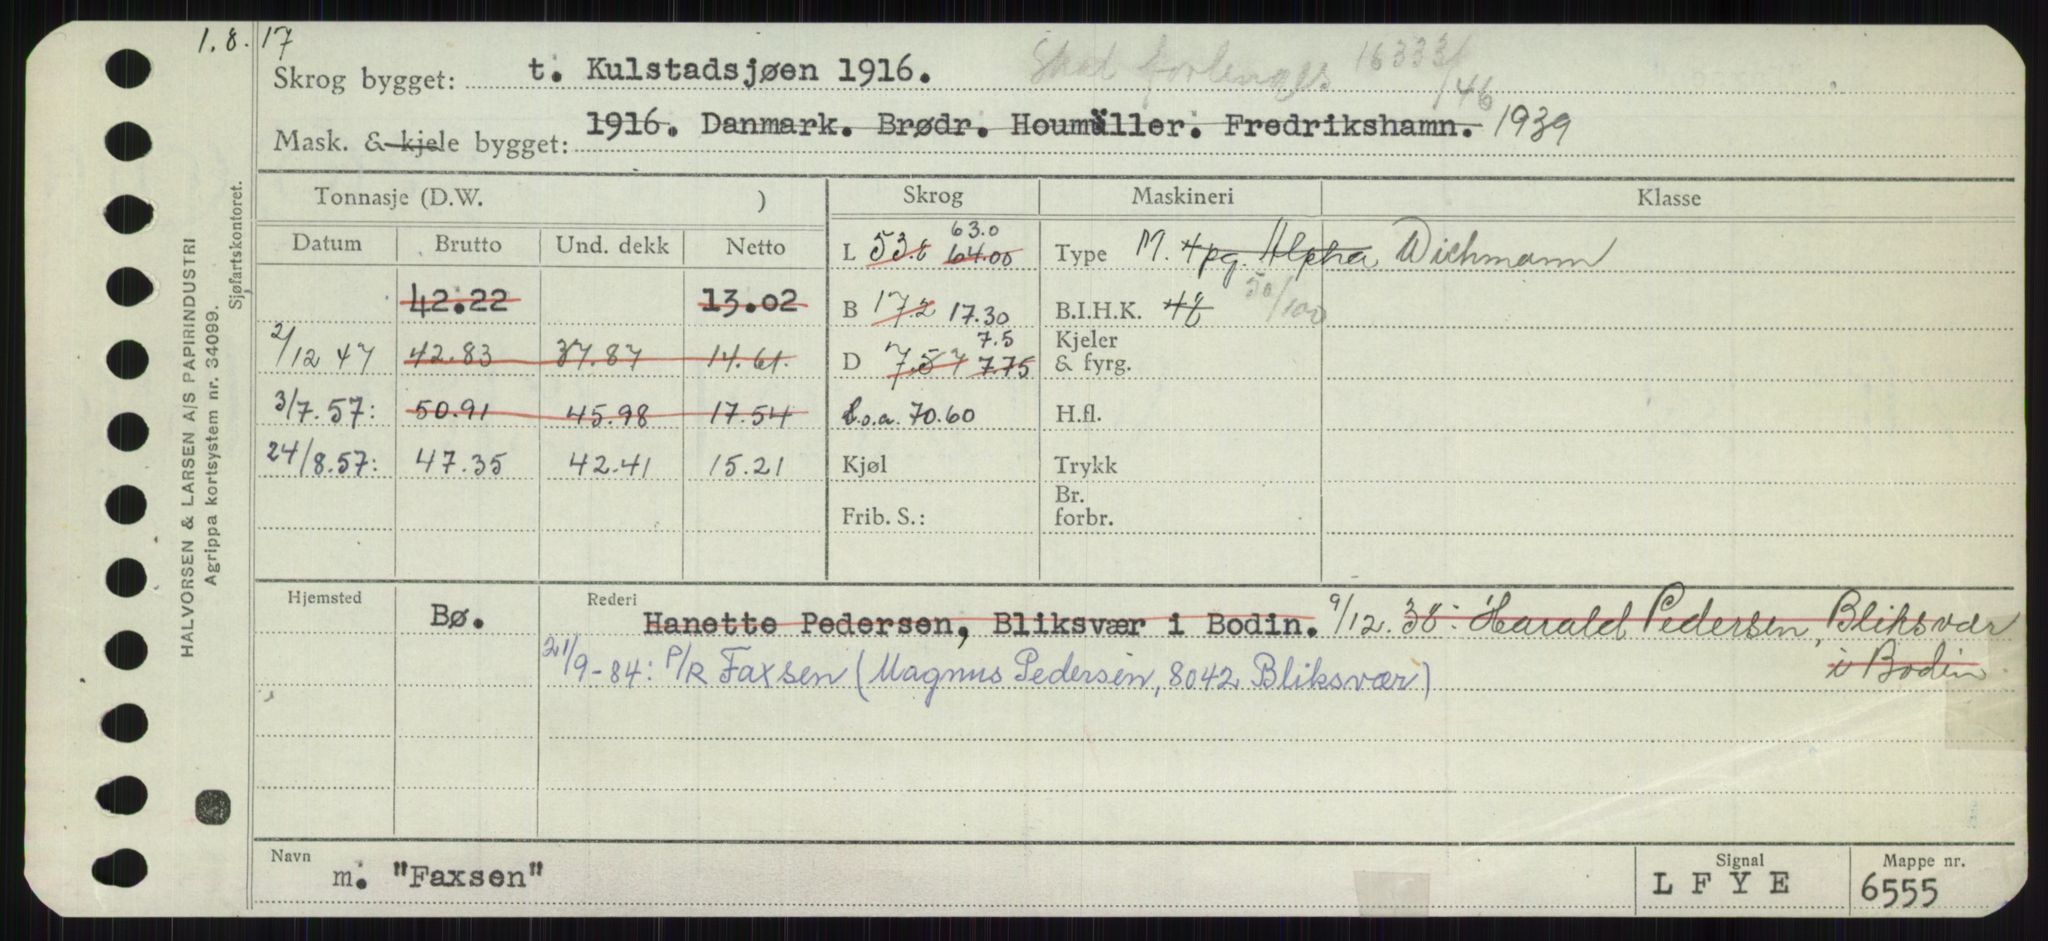 1.8.17
Skrog bygget: t. Kulstadsjøen 1916. Skal forlenges 16333/46
Mask. & kjele bygget: 1916. Danmark. Brødr. Houmüller. Fredrikshamn. 1939
Tonnasje (D.W. ) Skrog Maskineri Klasse
Datum Brutto Und. dekk Netto
L 53.8 64.00 63.0 Type M. 4pg. Alpha Wichmann
42.22 13.02
B 17.2 17.30 B.I.H.K. 50/100
2/12 47 42.83 37.87 14.61.
D 7.57 7.75 7.5 Kjeler & fyrg.
3/7.57: 50.91 45.98 17.54
L.o.a. 70.60 H.fl.
24/8.57: 47.35 42.41 15.21
Kjøl Trykk
Frib. S.: Br. forbr.
Hjemsted Bø. Rederi Hanette Pedersen, Bliksvær i Bodin. 9/12.38: Harald Pedersen, Bliksvær
i Bodin
21/9-84: P/R Faxsen (Magnus Pedersen, 8042 Bliksvær)
Navn m. "Faxsen" Signal LFYE Mappe nr. 6555
HALVORSEN & LARSEN A/S PAPIRINDUSTRI
Agrippa kortsystem nr. 34099.
Sjøfartskontoret.